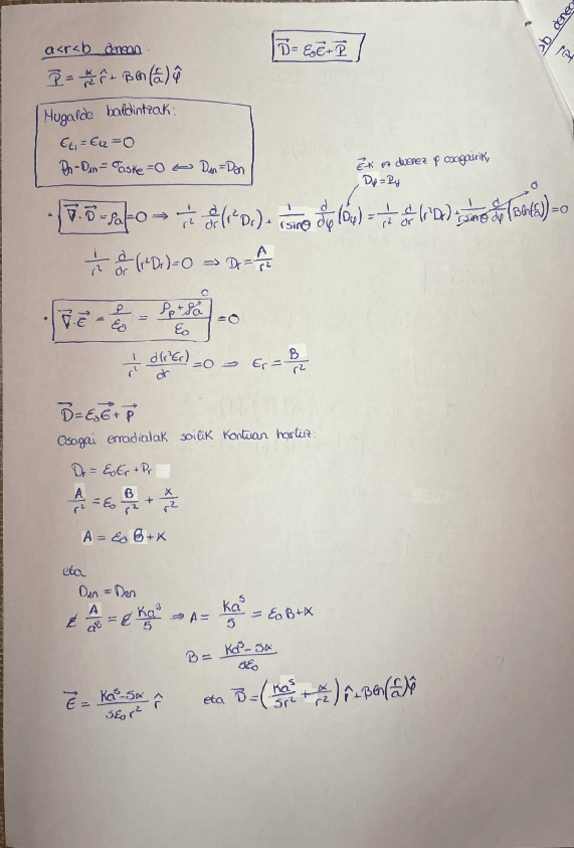 a<r<b denean:
D⃗ = ε₀ε⃗ + P⃗
P⃗ = α/r² r̂ + β ln(r/a) φ̂
Mugalde baldintzak:
εt1 = εt2 = 0
D2n - D1n = σaske = 0 ⟺ D1n = D2n
ε⃗-k ez dauenez φ osagairik,
Dφ = Pφ
· ∇⃗·D⃗ = ρa = 0 ⇒ 1/r² d/dr (r²Dr) + 1/(r sinθ) d/dφ (Dφ) = 1/r² d/dr (r²Dr) + 1/(r sinθ) d/dφ (β ln(r/a)) = 0
0
1/r² d/dr (r²Dr) = 0 ⇒ Dr = A/r²
· ∇⃗·ε⃗ = ρ/ε₀ = (ρp + ρa)/ε₀ = 0
0
1/r² d(r²εr)/dr = 0 ⇒ εr = B/r²
D⃗ = ε₀ε⃗ + P⃗
Osagai erradialak soilik kontuan hartuz:
Dr = ε₀εr + Pr
A/r² = ε₀ B/r² + α/r²
A = ε₀ B + α
eta
D1n = D2n
A/a² = Ka³/5 ⇒ A = Ka⁵/5 = ε₀B + α
B = (Ka⁵ - 5α)/5ε₀
ε⃗ = (Ka⁵ - 5α)/(5ε₀r²) r̂ eta D⃗ = (Ka⁵/5r² + α/r²) r̂ + β ln(r/a) φ̂